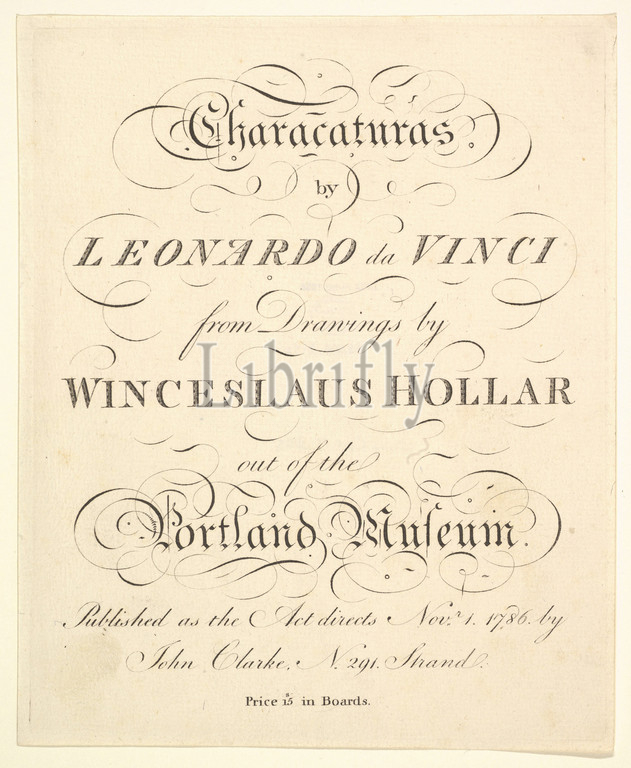 Characaturas
by
LEONARDO da VINCI
from Drawings by
WINCESLAUS HOLLAR
Librifly
out of the
Portland Muſeum.
Published as the Act directs Nov.r 1. 1786. by
John Clarke, N. 291. Strand.
Price 15s in Boards.